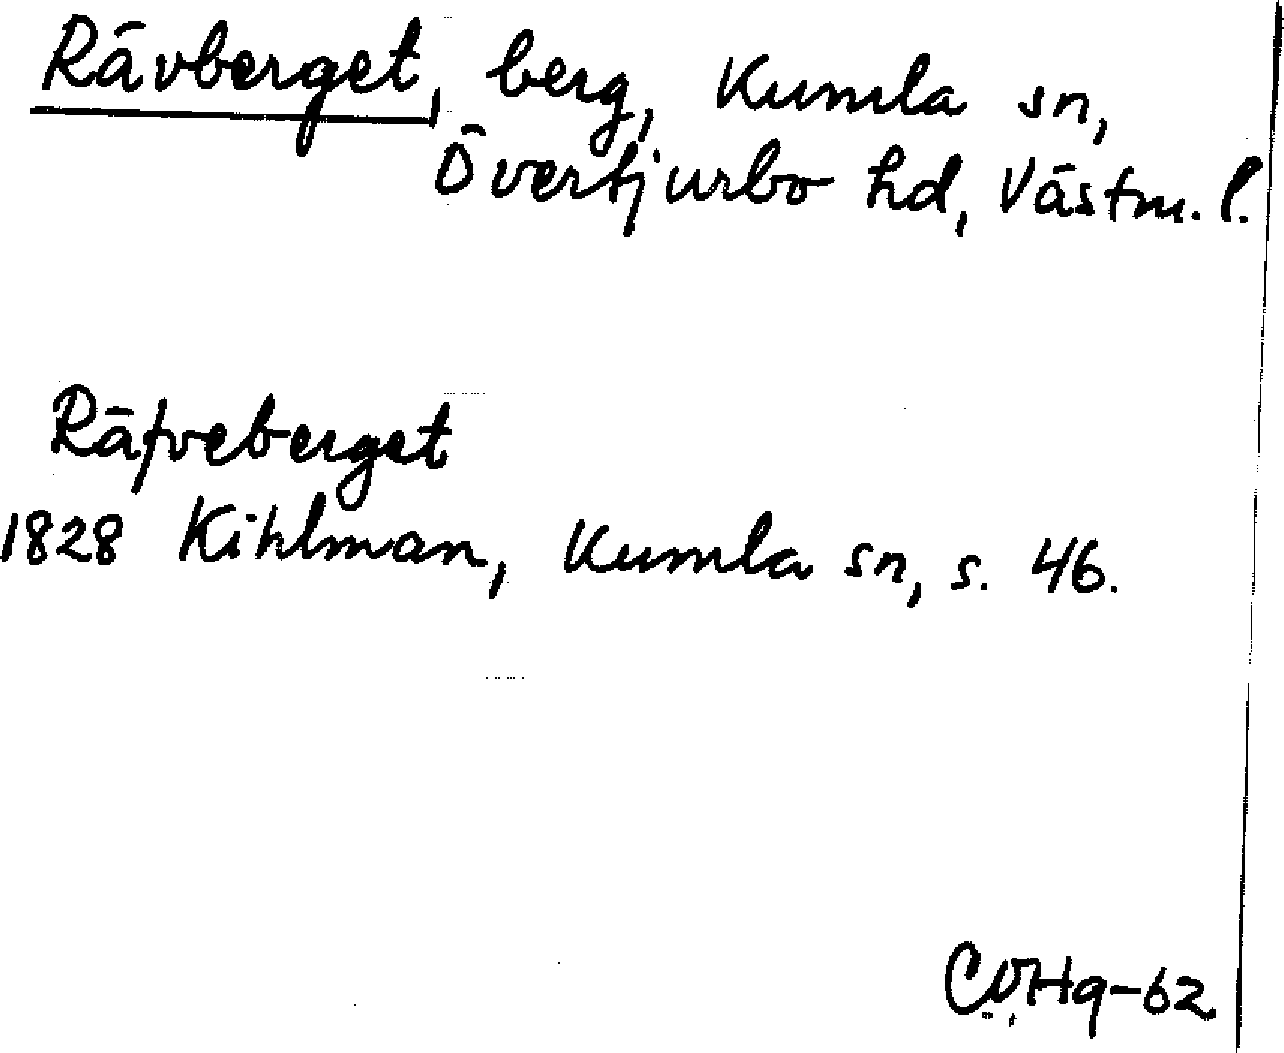 Rävberget, berg, Kumla sn,
Övertjurbo hd, Västm. l.
Räfveberget
1828 Kihlman, Kumla sn, s. 46.